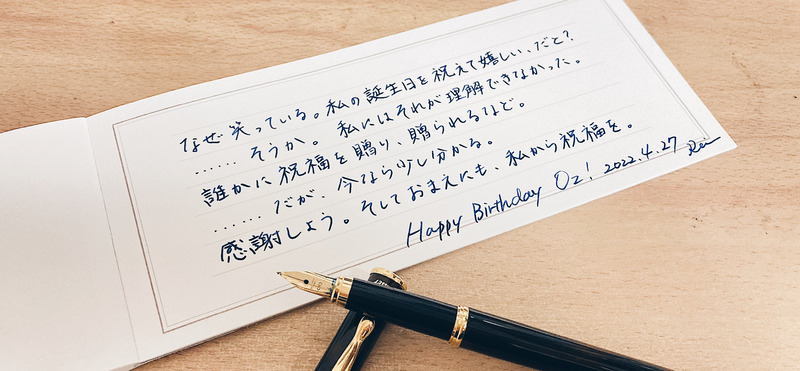 なぜ笑っている。私の誕生日を祝えて嬉しい、だと?
……そうか。私にはそれが理解できなかった。
誰かに祝福を贈り、贈られるなど。
……だが、今なら少し分かる。
感謝しよう。そしておまえにも、私から祝福を。
Happy Birthday Oz! 2022.4.27